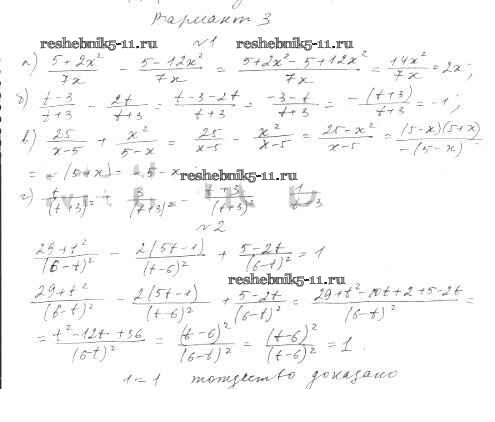 Вариант 3
reshebnik5-11.ru reshebnik5-11.ru
№1
а) (5+2x²)/7x - (5-12x²)/7x = (5+2x²-5+12x²)/7x = 14x²/7x = 2x;
б) (t-3)/(t+3) - 2t/(t+3) = (t-3-2t)/(t+3) = (-3-t)/(t+3) = -(t+3)/(t+3) = -1;
в) 25/(x-5) + x²/(5-x) = 25/(x-5) - x²/(x-5) = (25-x²)/(x-5) = (5-x)(5+x)/-(5-x) =
= -(5+x) = -5-x;
reshebnik5-11.ru
г) t/(t+3)² + 3/(t+3)² = (t+3)/(t+3)² = 1/t+3
№2
(29+t²)/(6-t)² - 2(5t-1)/(t-6)² + (5-2t)/(6-t)² = 1
reshebnik5-11.ru
(29+t²)/(6-t)² - 2(5t-1)/(t-6)² + (5-2t)/(6-t)² = (29+t²-10t+2+5-2t)/(6-t)² =
= (t²-12t+36)/(6-t)² = (t-6)²/(6-t)² = (t-6)²/(t-6)² = 1.
1=1 тождество доказано